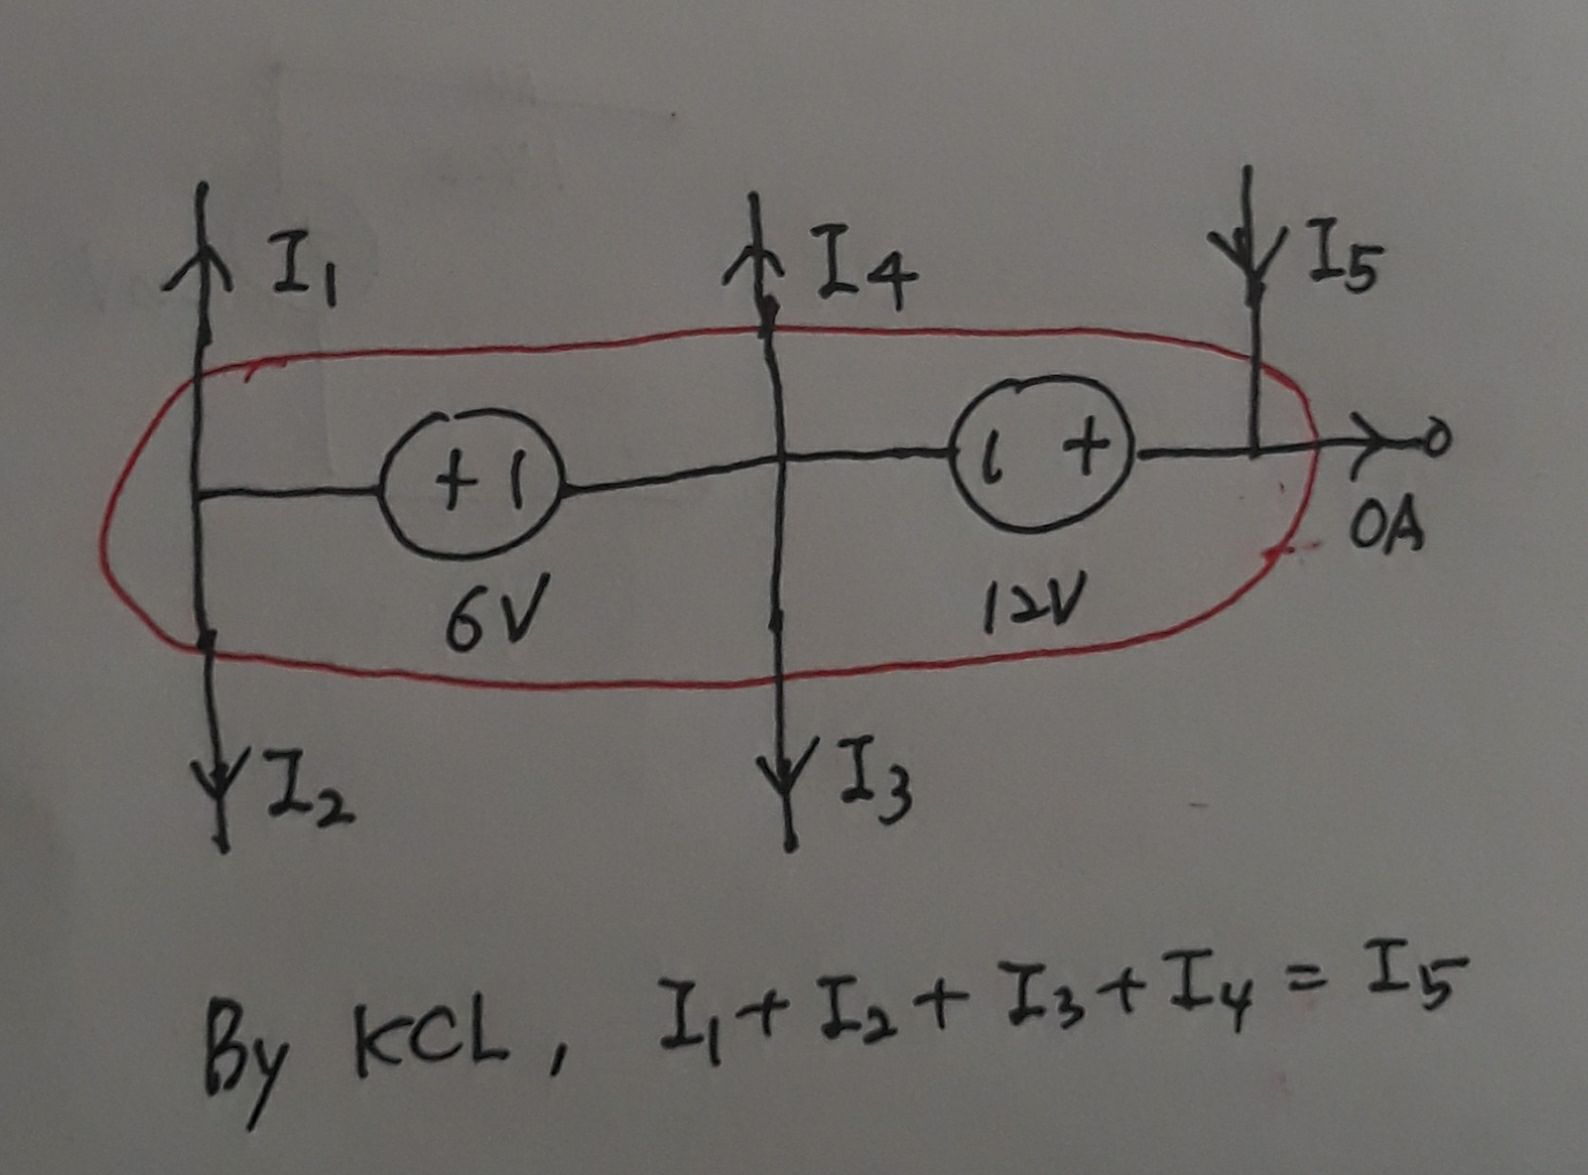 I1 I4 I5
+ - - +
6V 12V 0A
I2 I3
By KCL, I1 + I2 + I3 + I4 = I5